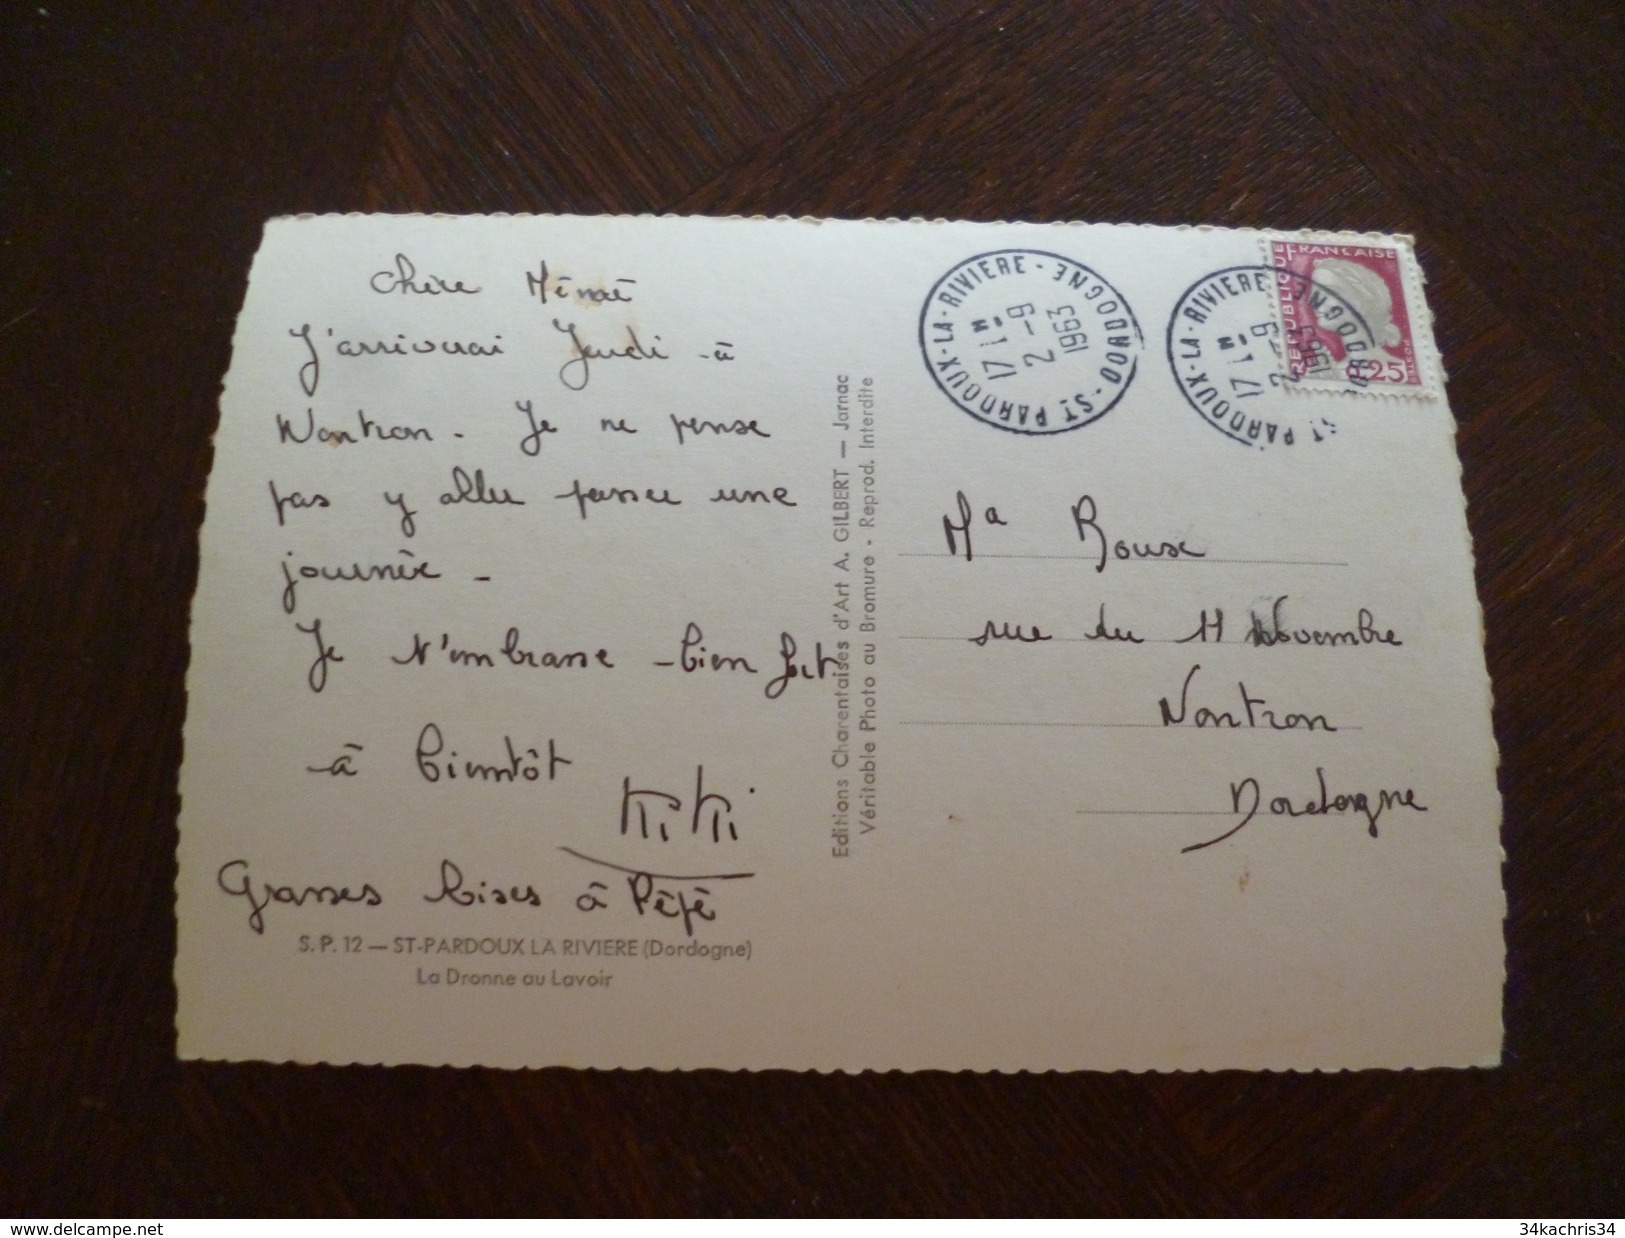 Chère Mémé
J'arriverai Jeudi à
Nontron. Je ne pense
pas y aller passer une
journée -
Je t'embrasse bien fort
à bientôt
KiKi
Grosses bises à Pépé
S. P. 12 — ST-PARDOUX LA RIVIERE (Dordogne)
La Dronne au Lavoir
Editions Charentaises d'Art A. GILBERT — Jarnac
Véritable Photo au Bromure - Reprod. Interdite
ST PARDOUX-LA-RIVIERE - DORDOGNE
17 H
2 - 9
1963
ST PARDOUX-LA-RIVIERE DORDOGNE
17 H
2 - 9
1963
REPUBLIQUE FRANCAISE
0,25
POSTES
Ma Roux
rue du 11 Novembre
Nontron
Dordogne
delcampe.net
34kachris34